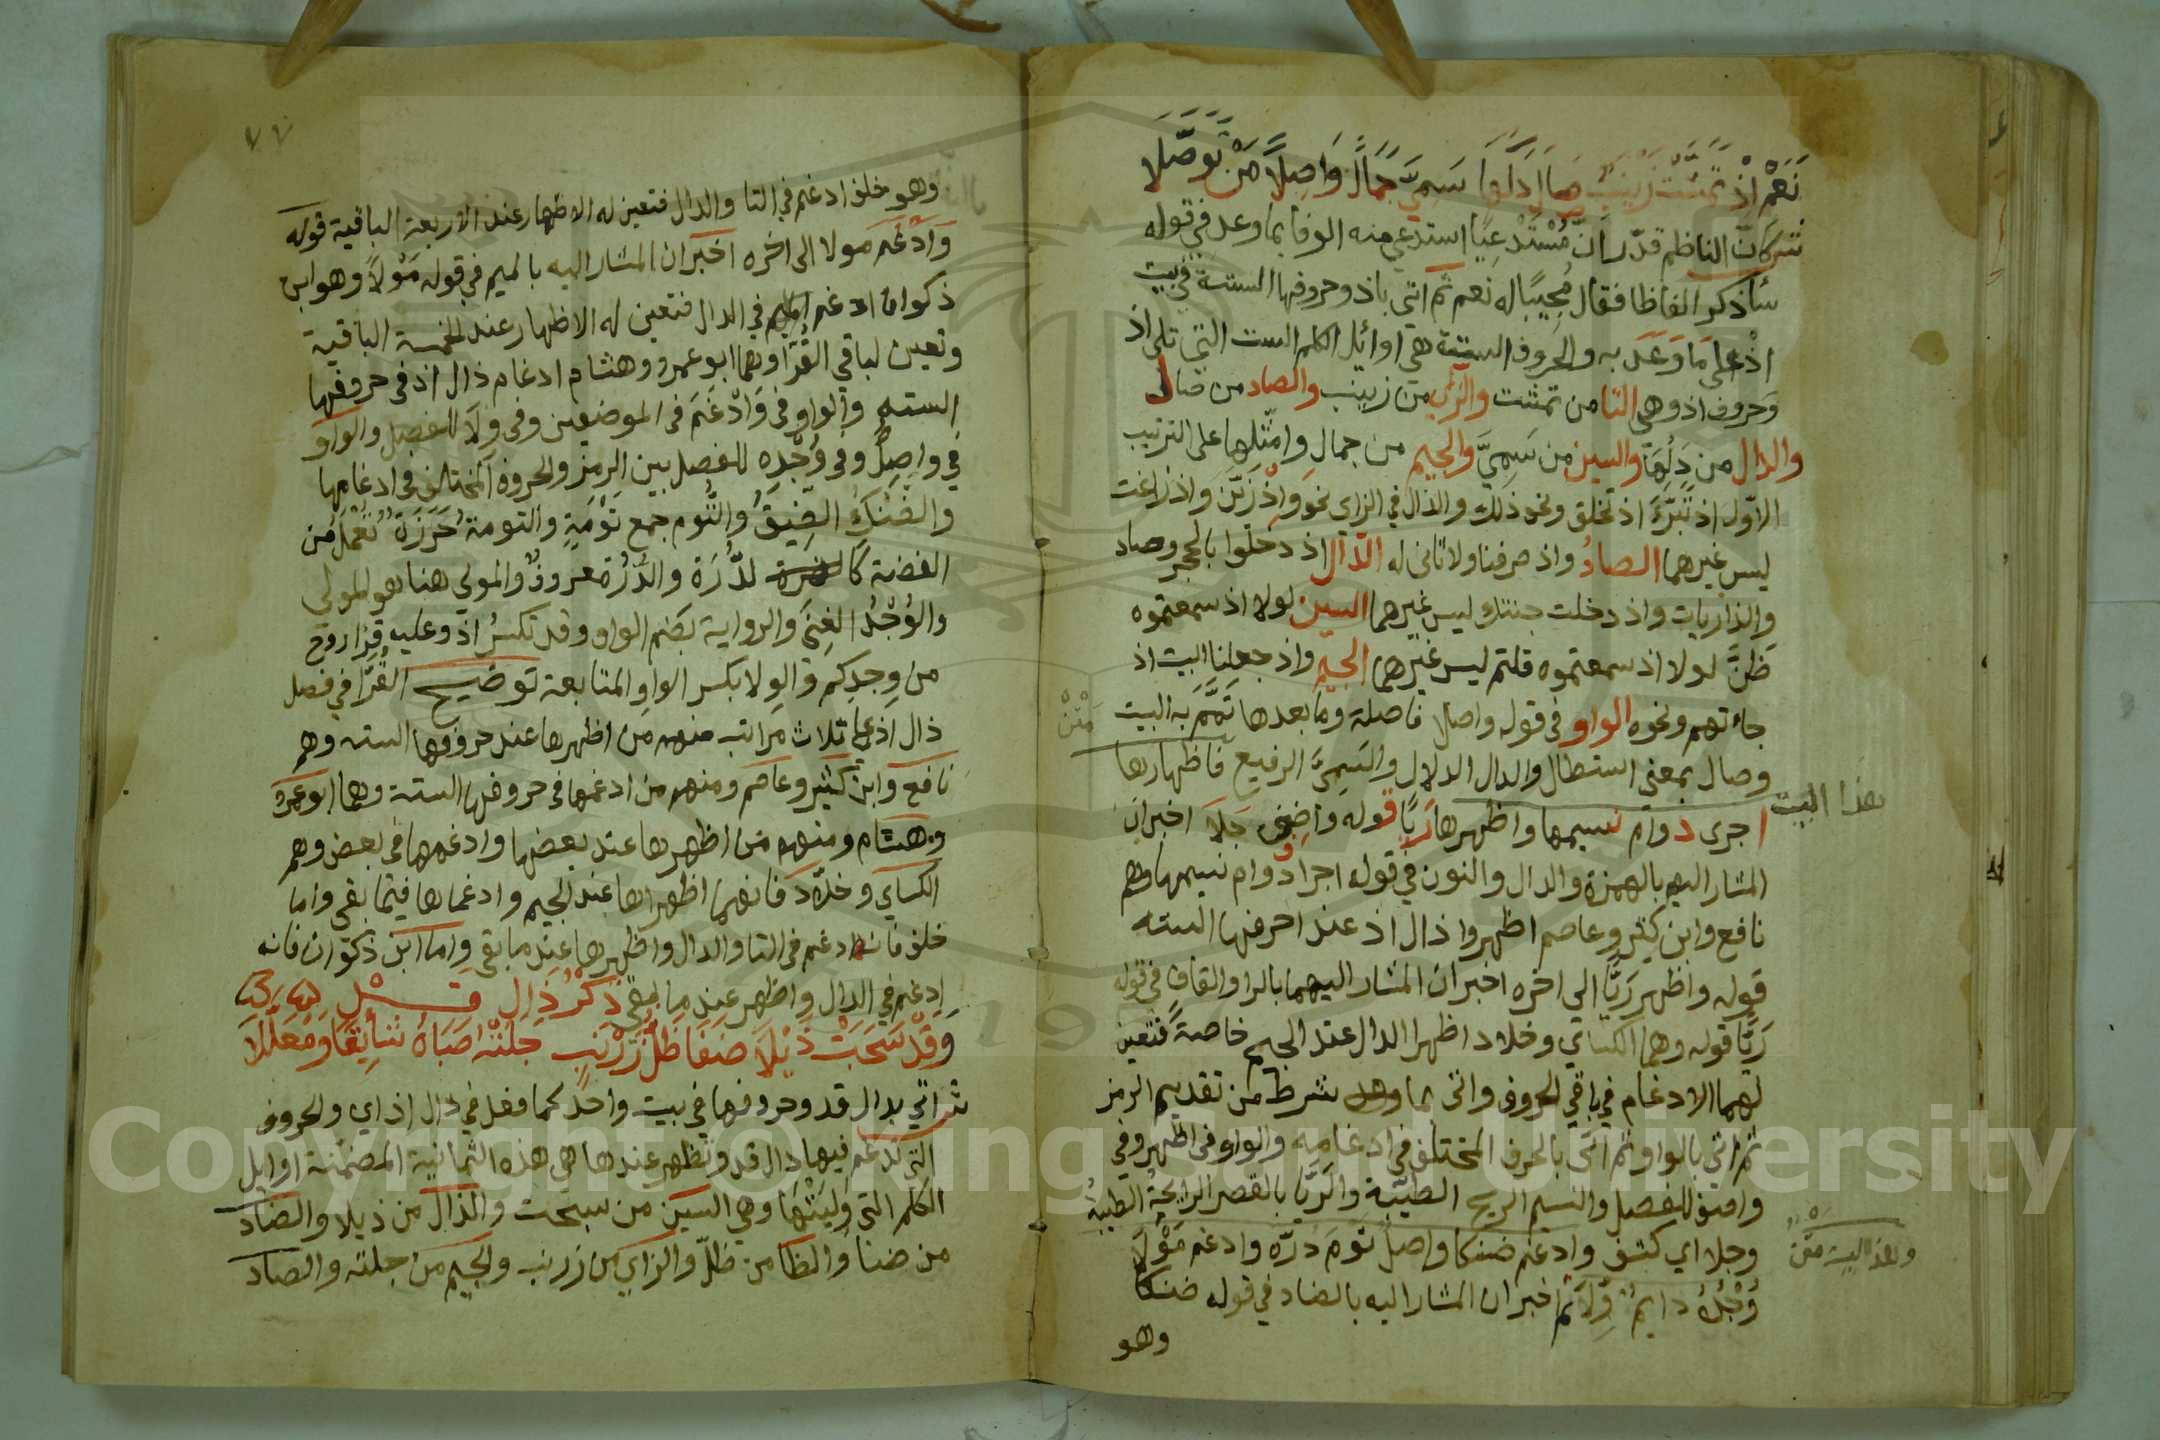 نَعَمْ اِذْ تَمَشَّتْ زَيْنَبٌ صَالَ دَلُّهَا سَمِيَّ جَمَالٍ وَاصِلًا مَنْ تَوَصَّلَا
ثم كانّ الناظم قدّر ان مُسْتَدْعِيًا استدعى منه الوفا بما وعد في قوله
ساذكر الفاظا فقال مُجِيبًا له نعم ثم اتى باذ وحروفها الستة في بيت
اذ على ما وَعَدَ به والحروف الستة هي اوائل الكلم الست التي تلي اذ
وحروف اذ وهي التا من تمشت والزاي من زينب والصاد من صال
والدال من دَلُّهَا والسين من سَمِيَّ والجيم من جمال وامثلها على الترتيب
الاوّل اذ تَبَرَّءَ اذ تخلق ونحو ذلك والذال في الزاي نحو وَاِذْ زَيَّنَ واذ زاغت
ليس غيرهما الصادُ واذ صرفنا ولا ثاني له الدّال اذ دخلوا بالحجر وصاد
والذاريات واذ دخلت جنتك ليس غيرهما السين لولا اذ سمعتموه
ظنَّ لولا اذ سمعتموه قلتم ليس غيرهما الجيم واذ جعلنا البيت اذ
جاءتهم ونحوه الواو في قوله واصلا فاصلة وما بعدها تَمَّمَ به البيت
مَتْنْ
وصال بمعنى استطال والدال الدلال والسَمِيَّ الرفيع فاظهارها
هذا البيت
اجرى دوام نسيمها واظهر رَيًّا قوله واصف جَلَا اخبر ان
المشار اليهم بالهمزة والدال والنون في قوله اجرا دوام نسيمها وهم
نافع وابن كثير وعاصم اظهروا ذال اذ عند احرفها الستة
قوله واظهر رَيًّا الى اخره اخبر ان المشار اليهما بالرا والقاف في قوله
رَيًّا قوله وهما الكسائي وخلاد اظهرا الدال عند الجيم خاصةً فتعين
لهما الادغام في باقي الحروف واتى بما وعد بشرط من تقديم الرمز
ثم اتى بالواو ثم اتى بالحرف المختلف في ادغامه والواو في اظهر وفي
واصف للفصل والنسيم الريح الطيّبة والرَيَّا بالقصر الرايحةُ الطيبةُ
وجلا اي كشف وادغم ضنكا واصلٌ تُوَمَ دُرّه وادغم مَوْلًى
وهذا البيت مَتْنٌ
وُجْدُهُ دايمٌ وِلَا ثم اخبر ان المشار اليه بالضاد في قوله ضنكا
وهو
٧٧
وهو خلف ادغم في التا والدال فتعين له الاظهار عند الاربعة الباقية قوله
وَاَدْغَمَ مولا الى اخره اخبر ان المشار اليه بالميم في قوله مَوْلًا وهو ابن
ذكوان ادغم في الدال فتعين له الاظهار عند الخمسة الباقية
وتعين لباقي القُرّا وهما ابو عمرو وهشام ادغام ذال اذ في حروفها
الستة والواو في وَاَدْغَمَ في الموضعين وفي وِلَا للفصل والواو
في واصِلٌ وفي وُجْدِه للفصل بين الرمز والحروف المختلف في ادغامها
والضَنْكُ الضِيقُ والتُّوم جمع تُوْمَةٍ والتومة خَرَزَةٌ تُعْمَلُ من
الفضة كالدُّرَة والدُّرّة معروفٌ والمولى هنا هو الولي
والوُجْدُ الغِنَى والرواية بضم الواو وقد تكسرُ اذ وعليه قرا روح
من وِجدِكم والوِلا بكسر الواو المتابعة توضيح القُرّا في فصل
ذال اذ على ثلاث مراتب منهم من اظهرها عند حروفها الستة وهم
نافع وابن كثير وعاصم ومنهم من ادغمها في حروفها الستة وهما ابو عمرو
وهشام ومنهم من اظهرها عند بعضها وادغمها في بعض وهم
الكسائي وخلاد فانهما اظهراها عند الجيم وادغماها فيما بقي واما
خلف فانه ادغم في التا والدال واظهرها عند ما بقي واما ابن ذكوان فانه
ادغم في الدال واظهر عند ما بقي ذِكْرُ ذَالِ قَدْ
وَقَدْ سَحَبَتْ ذَيْلًا ضَفَا ظَلَّ زَرْنَبٌ جَلَتْهُ صَبَاهُ شَائِقًا وَمُعَلِّلَا
ثم اتى بدال قد وحروفها في بيت واحد كما فعل في ذال اذ اي والحروف
التي تدغم فيها دال قد وتظهر عندها هي هذه الثمانية المضمنة اوايل
الكلم التي وَلِيَتْها وهي السين من سحبت والذال من ذيلا والضاد
من ضفا والظا من ظلّ والزاي من زرنب والجيم من جلته والصاد